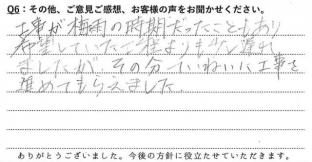 Q6：その他、ご意見ご感想、お客様の声をお聞かせください。
工事が梅雨の時期だったこともあり
希望していた工程よりも少し遅れ
ましたが、その分ていねいに工事を
進めてもらえました。
ありがとうございました。今後の方針に役立たせていただきます。